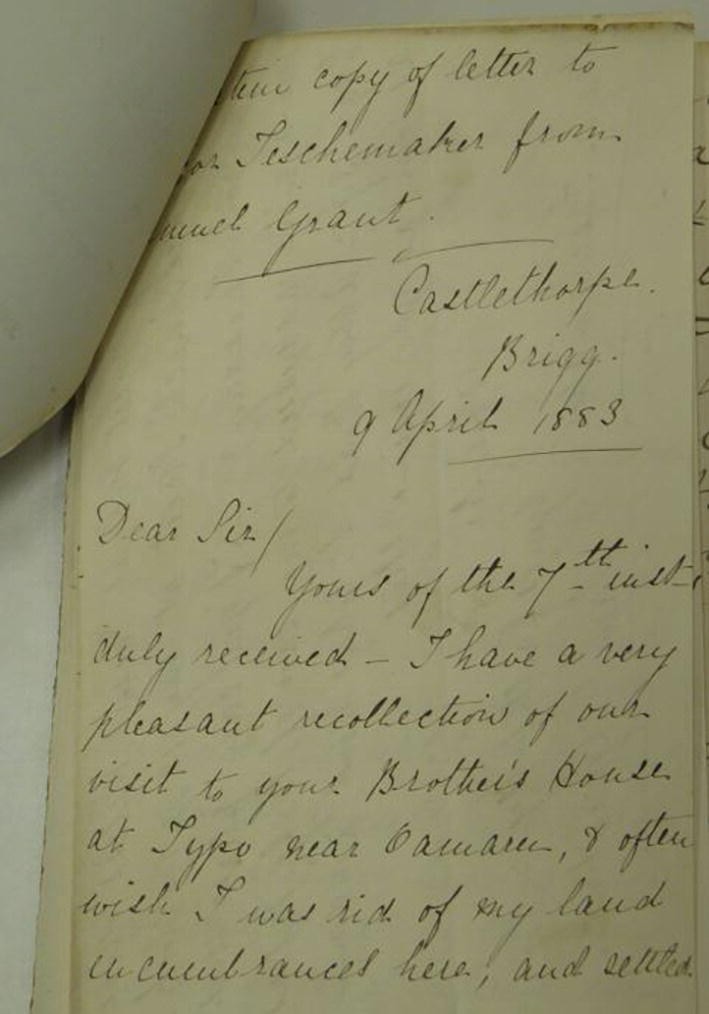 copy of letter to
or Teschemaker from
muel Grant.
Castlethorpe.
Brigg.
9 April 1883
Dear Sir/
Yours of the 7th inst
duly received – I have a very
pleasant recollection of our
visit to your Brother's House
at Typo near Oamaru, & often
wish I was rid of my land
incumbrances here, and settled